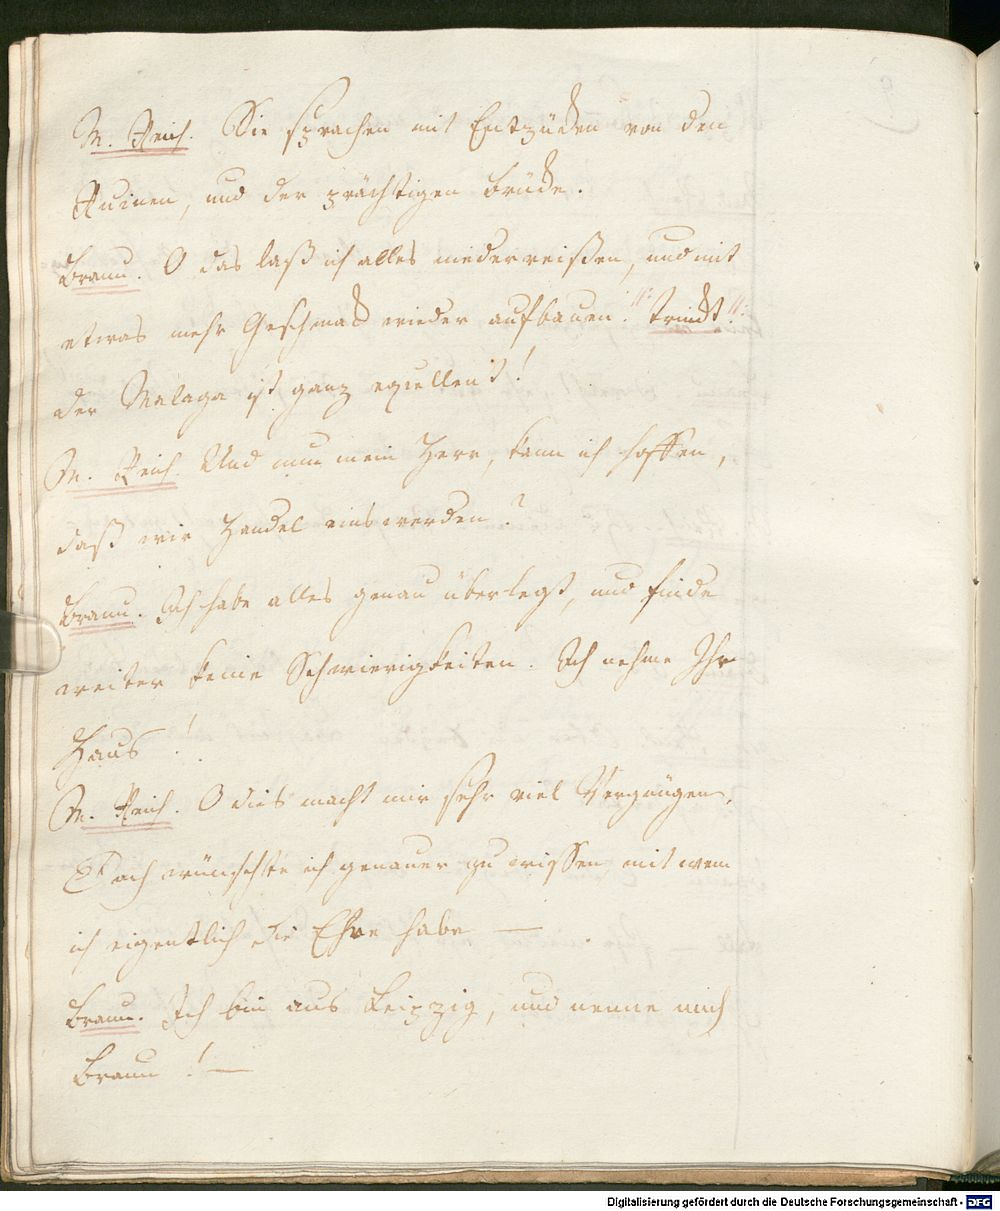 M. Reich. Sie sprachen mit Entzücken von den
Ruinen, und der prächtigen Brücke.
Braun. O das laß ich alles niederreißen, und mit
etwas mehr Geschmack wieder aufbauen! //: trinckt ://
der Malaga ist ganz exzellent!
M. Reich. Und nun mein Herr, kann ich hoffen,
daß wir Handel eins werden?
Braun. Ich habe alles genau überlegt, und finde
weiter keine Schwierigkeiten. Ich nehme Ihr
Haus!
M. Reich. O dies macht mir sehr viel Vergnügen.
Doch wünschte ich genauer zu wissen, mit wem
ich eigentlich die Ehre habe —
Braun. Ich bin aus Leipzig, und nenne mich
Braun! —
Digitalisierung gefördert durch die Deutsche Forschungsgemeinschaft - DFG